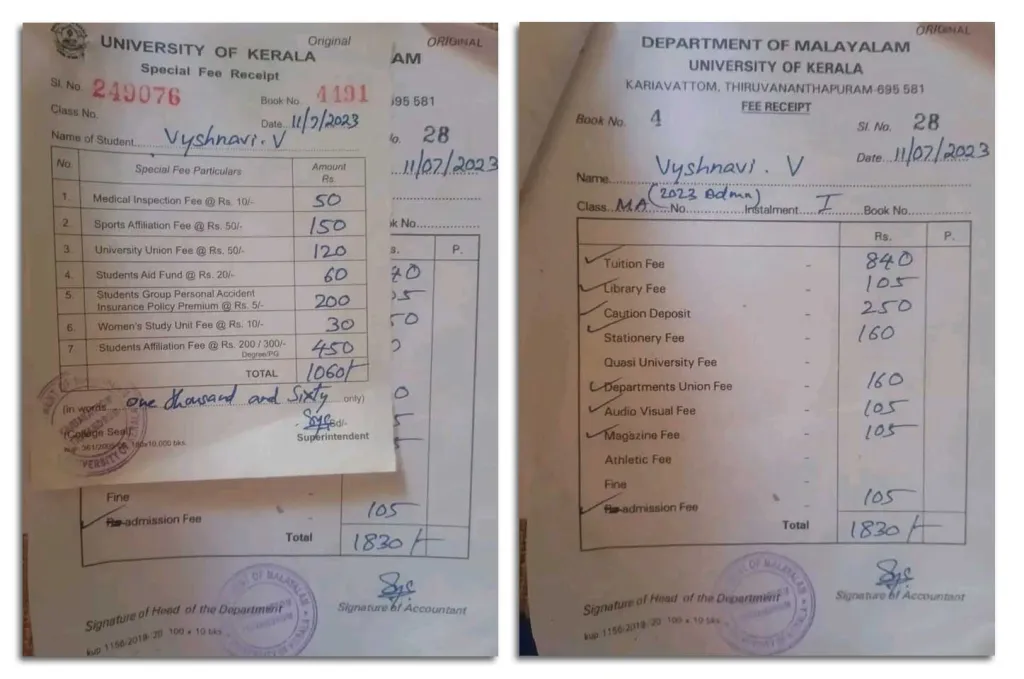 UNIVERSITY OF KERALA
Original
Special Fee Receipt
Sl. No. 249076
Book No. 4491
Class No.
Date... 11/7/2023
Name of Student...... Vyshnavi. V
No. Special Fee Particulars Amount Rs.
1. Medical Inspection Fee @ Rs. 10/- 50
2. Sports Affiliation Fee @ Rs. 50/- 150
3. University Union Fee @ Rs. 50/- 120
4. Students Aid Fund @ Rs. 20/- 60
5. Students Group Personal Accident
Insurance Policy Premium @ Rs. 5/- 200
6. Women's Study Unit Fee @ Rs. 10/- 30
7 Students Affiliation Fee @ Rs. 200 / 300/- 450
Degree/PG
TOTAL 1060/-
(in words.... one thousand and Sixty only)
(College Seal)
Sd/-
Superintendent
ORIGINAL
AM
695 581
No. 28
11/07/2023
ok No............
s. P.
Fine -
admission Fee - 105
Total 1830/-
Signature of Head of the Department
Signature of Accountant
kup 1156-2018-20 100 x 10 bks
ORIGINAL
DEPARTMENT OF MALAYALAM
UNIVERSITY OF KERALA
KARIAVATTOM, THIRUVANANTHAPURAM-695 581
FEE RECEIPT
Book No. 4
Sl. No. 28
Date...11/07/2023
Name...... Vyshnavi. V
Class MA (2023 Admn) No. Instalment I Book No.
Rs. P.
Tuition Fee - 840
Library Fee - 105
Caution Deposit - 250
Stationery Fee - 160
Quasi University Fee -
Departments Union Fee - 160
Audio Visual Fee - 105
Magazine Fee - 105
Athletic Fee -
Fine -
admission Fee - 105
Total 1830/-
Signature of Head of the Department
Signature of Accountant
kup 1156-2018-20 100 x 10 bks